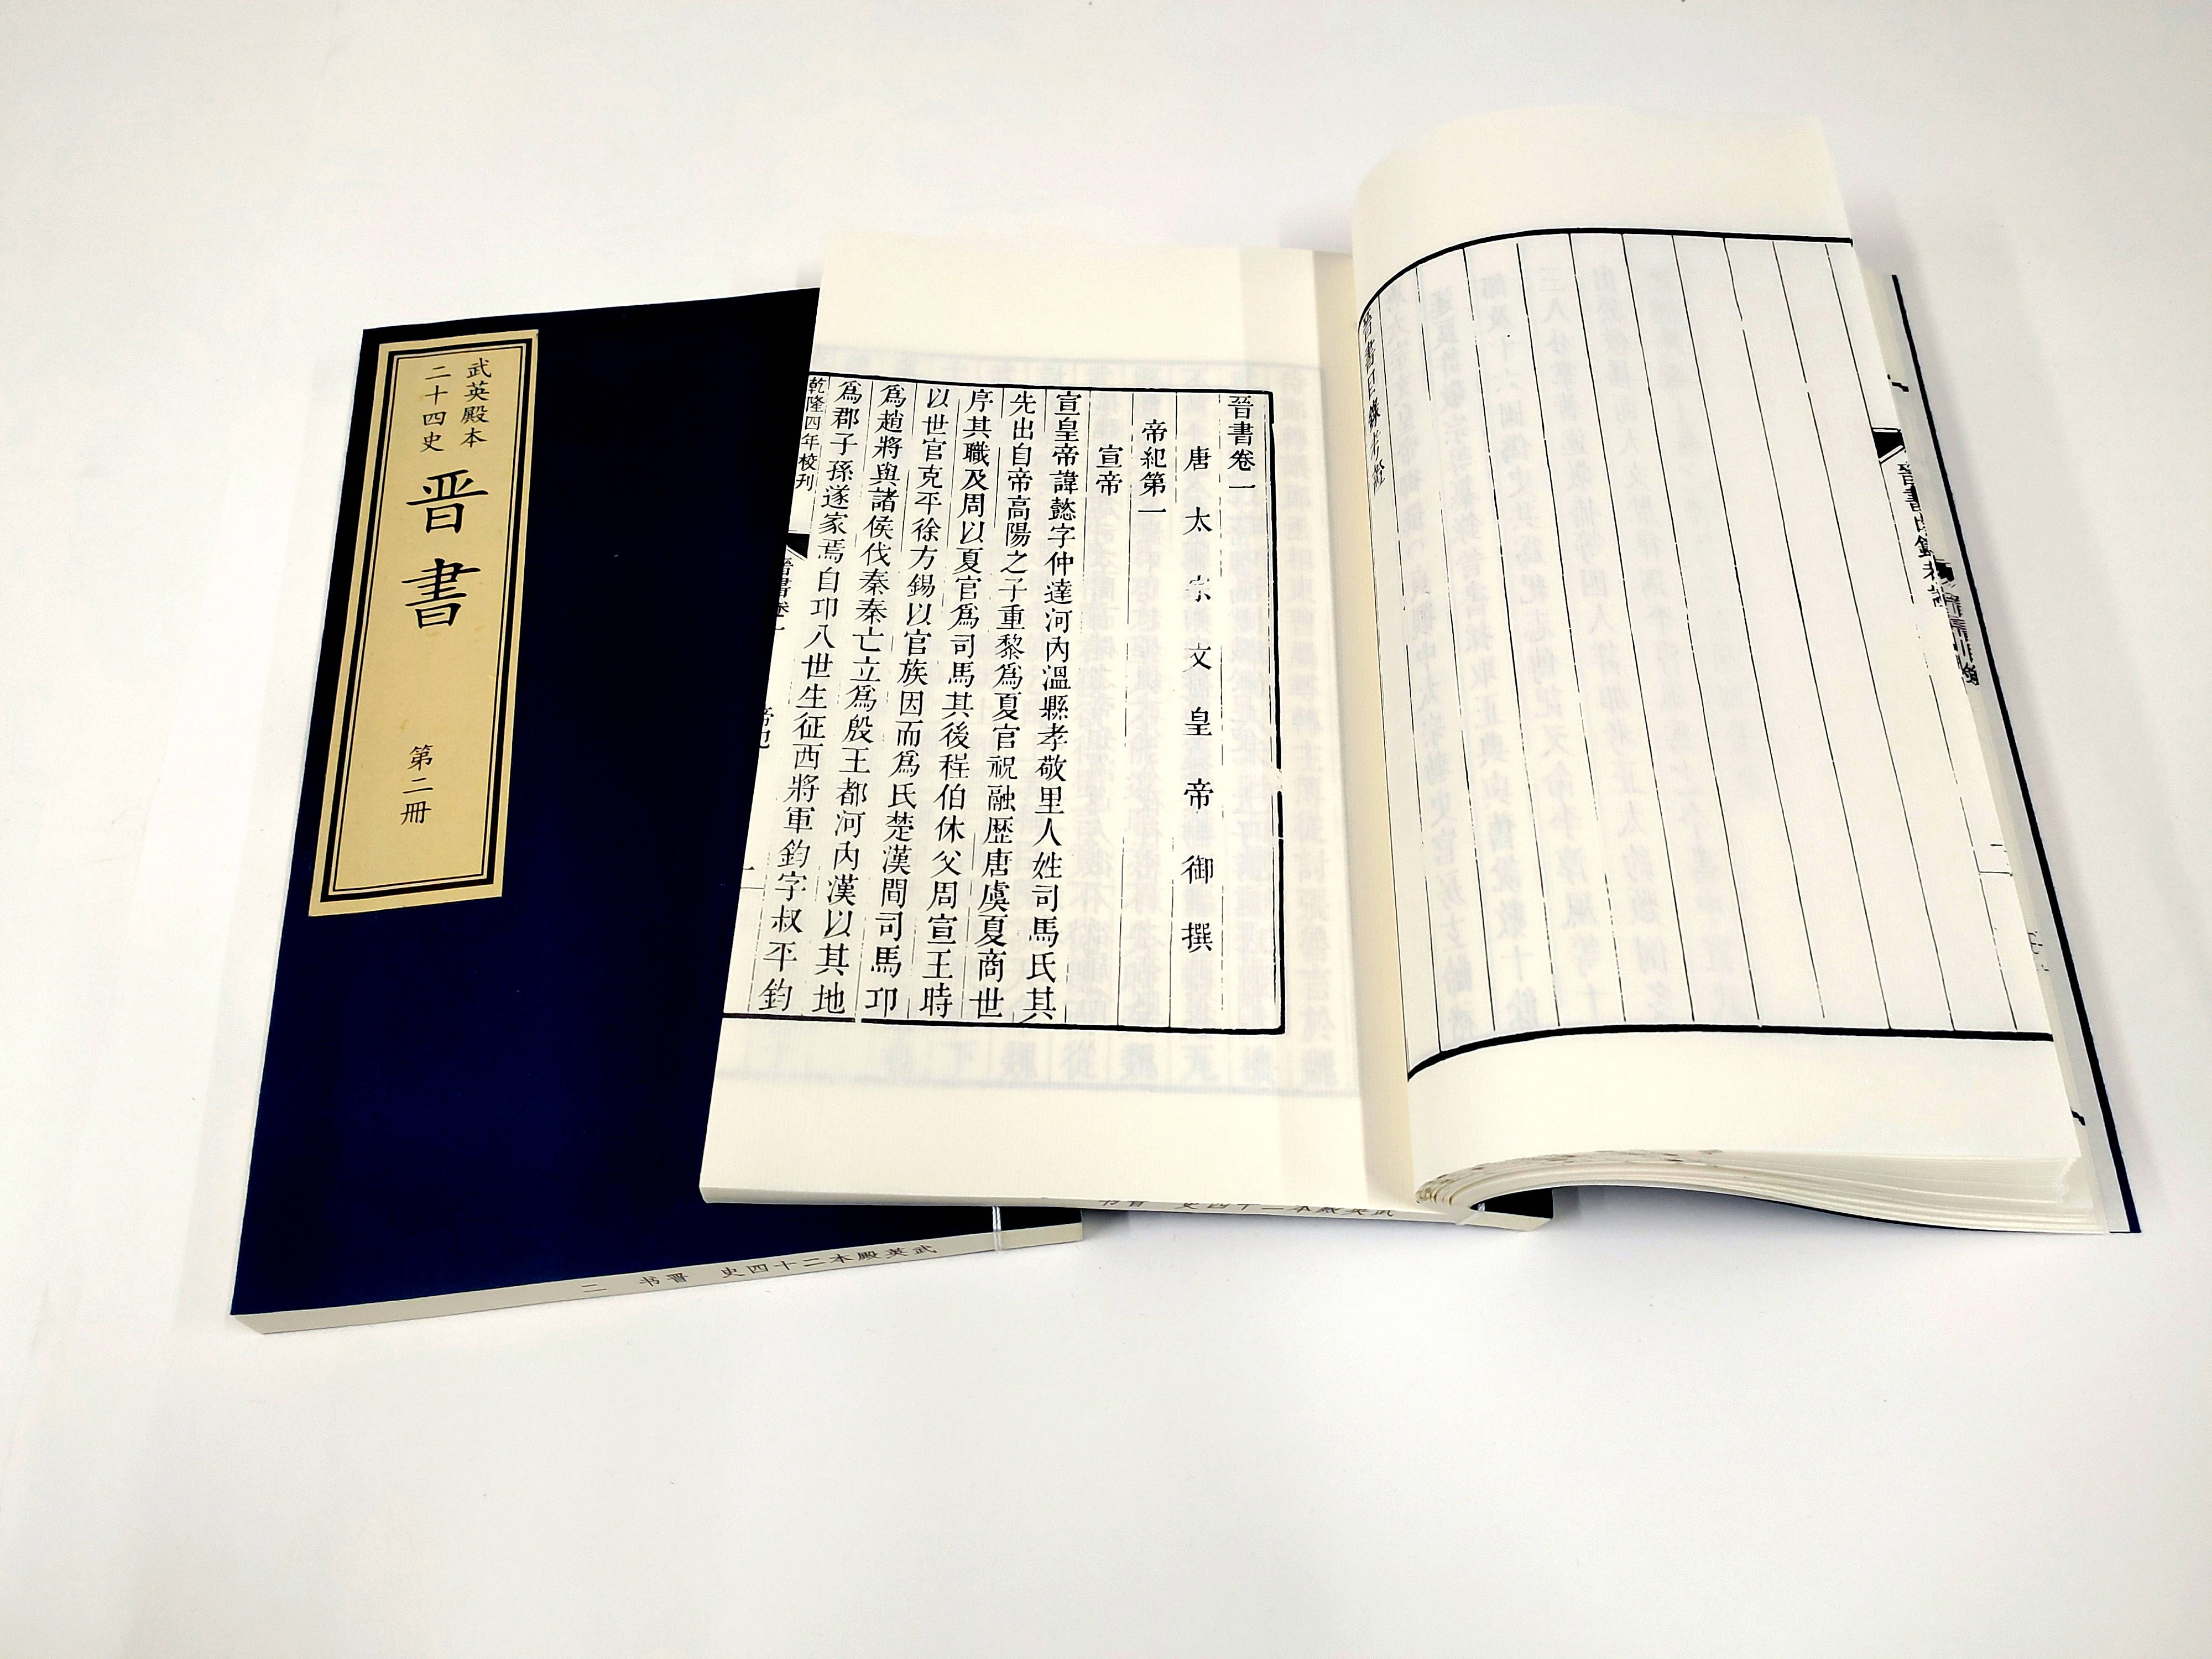 武英殿本
二十四史
晋書
第二冊
晉書卷一
唐太宗文皇帝御撰
帝紀第一
宣帝
宣皇帝諱懿字仲達河內溫縣孝敬里人姓司馬氏其
先出自帝高陽之子重黎爲夏官祝融歷唐虞夏商世
序其職及周以夏官爲司馬其後程伯休父周宣王時
以世官克平徐方錫以官族因而爲氏楚漢間司馬卭
爲趙將與諸侯伐秦秦亡立爲殷王都河內漢以其地
爲郡子孫遂家焉自卭八世生征西將軍鈞字叔平鈞
乾隆四年校刊
晉書卷一
帝紀
一
晉書目錄考證
武英殿本二十四史 晋书 二
武英殿本二十四史 晋书